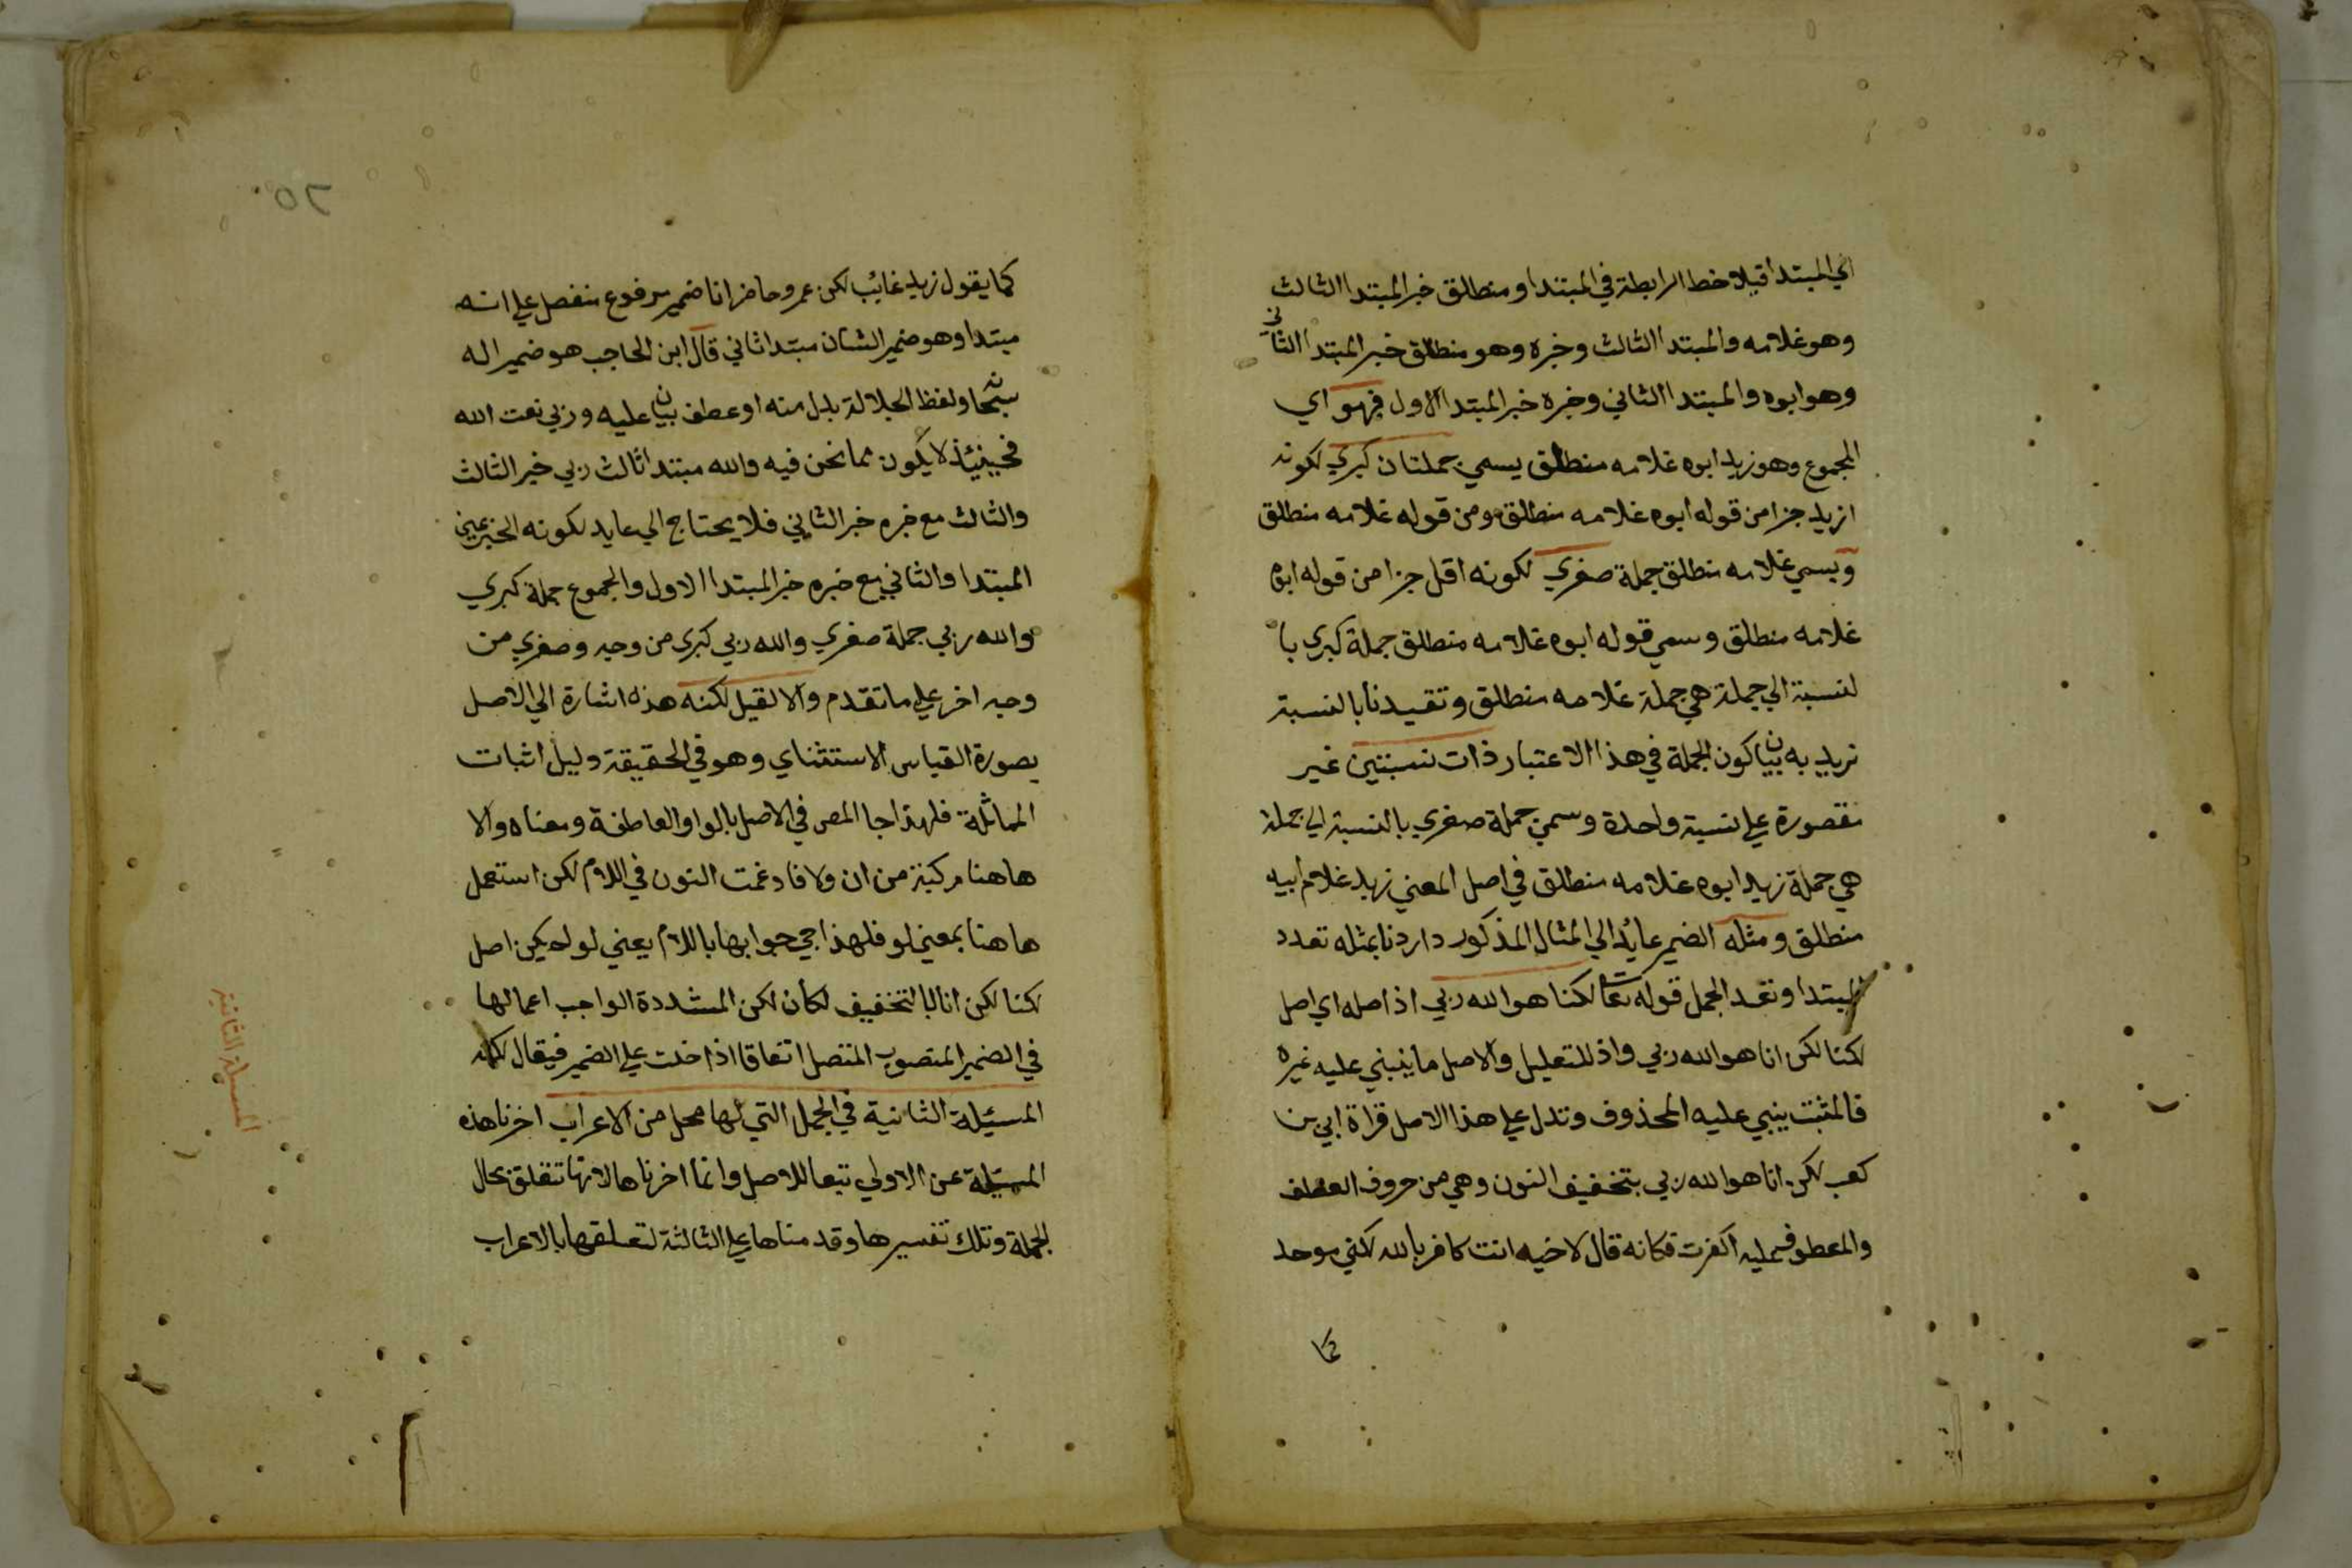 اي المبتدا قيلاخط الرابطة في المبتدا ومنطلق خبر المبتدا الثالث
وهو غلامه والمبتدا الثالث وخبره وهو منطلق خبر المبتدا الثاني
وهو ابوه والمبتدا الثاني وخبره خبر المبتدا الاول فهو اي
المجموع وهو زيد ابوه غلامه منطلق يسمي جملتان كبري لكونه
ازيد جزا من قوله ابوه غلامه منطلق ومن قوله غلامه منطلق
ويسمي غلامه منطلق جملة صغري لكونه اقل جزا من قوله ابوه
غلامه منطلق وسمي قوله ابوه غلامه منطلق جملة كبري با
لنسبة الي جملة هي جملة غلامه منطلق وتقيدنا بالنسبة
نريد به بيان كون الجملة في هذا الاعتبار ذات نسبتين غير
مقصورة علي نسبة واحدة وسمي جملة صغري بالنسبة الي جملة
هي جملة زيد ابوه غلامه منطلق في اصل المعني زيد غلام ابيه
منطلق ومثله الضمير عائد الي المثال المذكور داردنا بمثله تعدد
المبتدا وتعدد الجمل قوله تعا لكنا هو الله ربي اذ اصله اي اصل
لكنا لكن انا هو الله ربي واذ للتعليل والاصل ما ينبني عليه غيره
فالمثبت ينبي عليه المحذوف وتدل علي هذا الاصل قراة ابي بن
كعب لكن انا هو الله ربي بتخفيف النون وهي من حروف العطف
والمعطوف عليه اكفرت فكانه قال لاخيه انت كافر بالله لكني موحد
كما
٢٥
كما يقول زيد غائب لكن عمرو حاضر انا ضمير مرفوع منفصل علي انه
مبتدا وهو ضمير الشان مبتدا ثاني قال ابن الحاجب هو ضمير اله
سبحانه ولفظ الجلالة بدل منه او عطف بيان عليه وربي نعت الله
فحينئذ لا يكون مما نحن فيه والله مبتدا ثالث ربي خبر الثالث
والثالث مع خبره خبر الثاني فلا يحتاج الي عايد لكونه الخبر عين
المبتدا والثاني مع خبره خبر المبتدا الاول والمجموع جملة كبري
والله ربي جملة صغري والله ربي كبري من وجه وصغري من
وجه اخر علي ما تقدم والا لقيل لكنه هذه اشارة الي الاصل
بصورة القياس الاستثناي وهو في الحقيقة دليل اثبات
المماثلة فلهذا جا المص في الاصل بالواو العاطفة ومعناه والا
هاهنا مركبة من ان ولا فادغمت النون في اللام لكن استعمل
هاهنا بمعني لو فلهذا جي جوابها باللام يعني لو لم يكن اصل
لكنا لكن انا بالتخفيف لكان لكن المشددة الواجب اعمالها
في الضمير المنصوب المتصل اتفاقا اذا دخلت علي الضمير فيقال لكنه
المسئيلة الثانية في الجمل التي لها محل من الاعراب اخرنا هذه
المسئيلة عن الاولي تبعا للاصل وانما اخرناها لانها تتعلق بحال
الجملة وتلك تفسيرها وقدمناها علي الثالثة لتعلقها بالاعراب
المسئلة الثانية